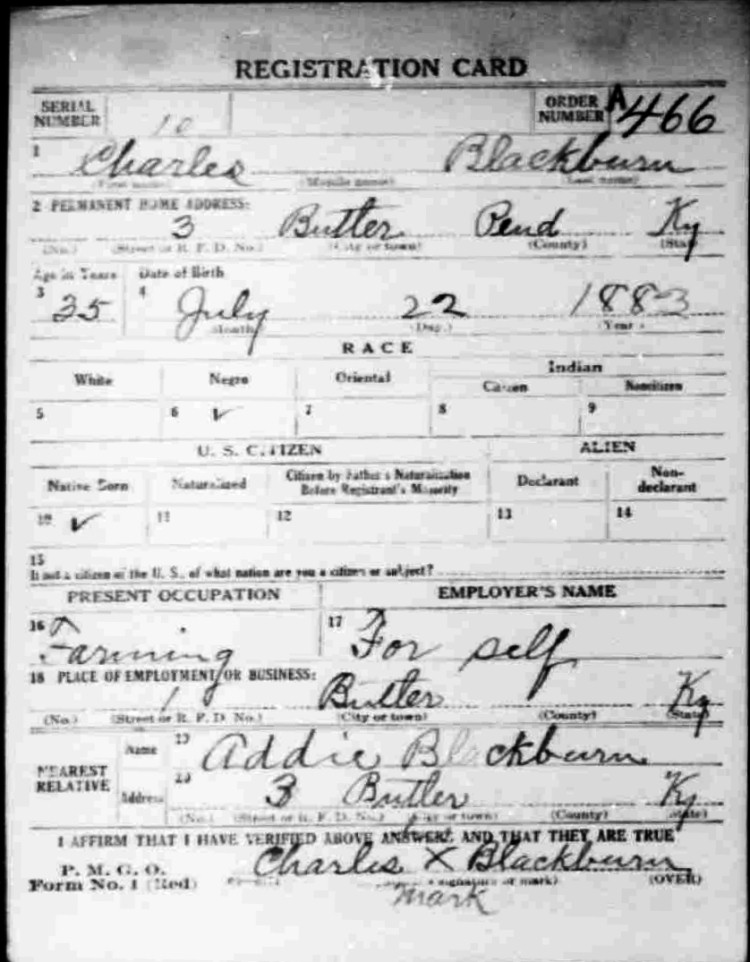 REGISTRATION CARD
SERIAL NUMBER 10 ORDER NUMBER A466
1 Charles Blackburn
(First name) (Middle name) (Last name)
2 PERMANENT HOME ADDRESS:
3 Butler Pend Ky
(No.) (Street or R. F. D. No.) (City or town) (County) (State)
Age in Years Date of Birth
3 35 4 July 22 1883
(Month) (Day.) (Year)
RACE
White Negro Oriental Indian
Citizen Noncitizen
5 6 ✓ 7 8 9
U. S. CITIZEN ALIEN
Native Born Naturalized Citizen by Father's Naturalization Before Registrant's Majority Declarant Non-declarant
10 ✓ 11 12 13 14
15
If not a citizen of the U. S., of what nation are you a citizen or subject?
PRESENT OCCUPATION EMPLOYER'S NAME
16 Farming 17 For self
18 PLACE OF EMPLOYMENT OR BUSINESS:
1 Butler Ky
(No.) (Street or R. F. D. No.) (City or town) (County) (State)
NEAREST RELATIVE
Name 19 Addie Blackburn
Address 20 3 Butler Ky
(No.) (Street or R. F. D. No.) (City or town) (County) (State)
I AFFIRM THAT I HAVE VERIFIED ABOVE ANSWERS AND THAT THEY ARE TRUE
P. M. G. O.
Form No. 1 (Red) Charles X Blackburn
(signature or mark) (OVER)
mark